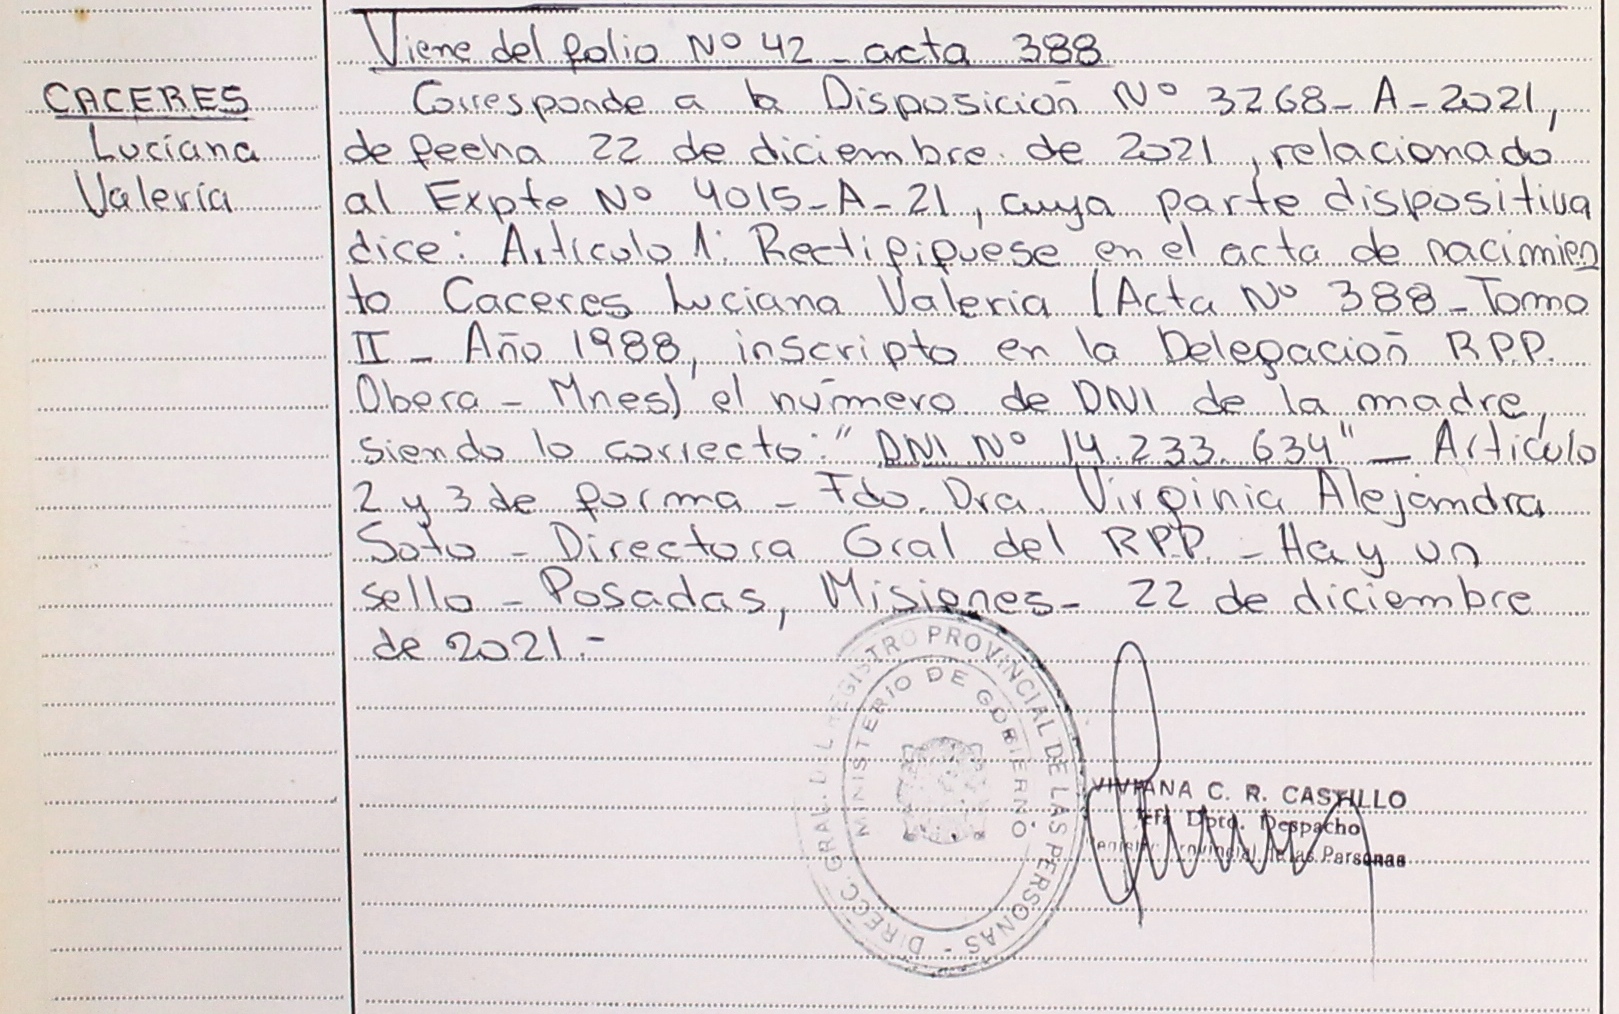 Viene del folio Nº 42 - acta 388
CACERES
Luciana
Valeria
Corresponde a la Disposición Nº 3268-A-2021,
de fecha 22 de diciembre de 2021, relacionado
al Expte Nº 4015-A-21, cuya parte dispositiva
dice: Artículo 1: Rectifiquese en el acta de nacimien
to Caceres Luciana Valeria (Acta Nº 388 - Tomo
II - Año 1988, inscripto en la Delegación R.P.P.
Obera - Mnes) el número de DNI de la madre,
siendo lo correcto: "DNI Nº 14.233.634" - Artículo
2 y 3 de forma - Fdo. Dra. Virginia Alejandra
Soto - Directora Gral del R.P.P. - Hay un
sello - Posadas, Misiones - 22 de diciembre
de 2021.-
DIRECC. GRAL. DEL REGISTRO PROVINCIAL DE LAS PERSONAS -
MINISTERIO DE GOBIERNO
VIVIANA C. R. CASTILLO
Jefa Dpto. Despacho
Registro Provincial de las Personas